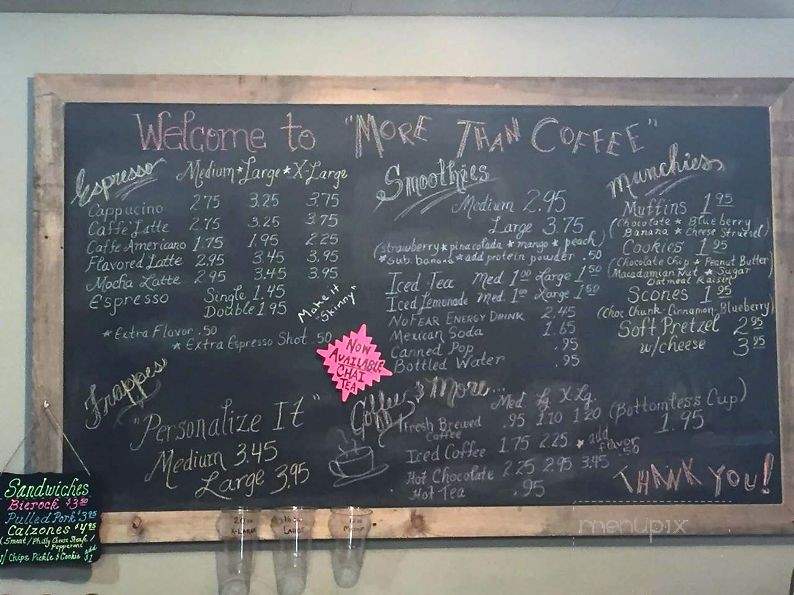 Welcome to "MORE THAN COFFEE"
Espresso Medium * Large * X-Large
Cappucino 2.75 3.25 3.75
Caffe' Latte 2.75 3.25 3.75
Caffe Americano 1.75 1.95 2.25
Flavored Latte 2.95 3.45 3.95
Mocha Latte 2.95 3.45 3.95
Espresso Single 1.45
Double 1.95
* Extra Flavor .50
* Extra Espresso Shot .50
Make it "Skinny"
NOW AVAILABLE CHAI TEA
Frappes
"Personalize It"
Medium 3.45
Large 3.95
Smoothies
Medium 2.95
Large 3.75
(strawberry * pina colada * mango * peach)
*sub. banana * add protein powder .50
Iced Tea Med 1.00 Large 1.50
Iced Lemonade Med. 1.00 Large 1.50
NoFear Energy Drink 2.45
Mexican Soda 1.65
Canned Pop .95
Bottled Water .95
Coffee & More...
Med Lg X-Lg
Fresh Brewed Coffee .95 1.10 1.20 (Bottomless Cup) 1.95
Iced Coffee 1.75 2.25 * add flavor .50
Hot Chocolate 2.25 2.95 3.45
Hot Tea .95
Munchies
Muffins 1.95
(Chocolate * Blueberry
Banana * Cheese Struesel)
Cookies 1.95
(Chocolate Chip * Peanut Butter
Macadamian Nut * Sugar
Oatmeal Raisin)
Scones 1.95
(Choc Chunk-Cinnamon-Blueberry)
Soft Pretzel 2.95
w/cheese 3.95
THANK YOU!
Sandwiches
Bierock
Pulled Pork $3.95
Calzones $4.95
Philly Cheese Steak /
Pepperoni)
w/ Chips Pickle & Cookie add $1
X-Large
Large
Medium
menupix